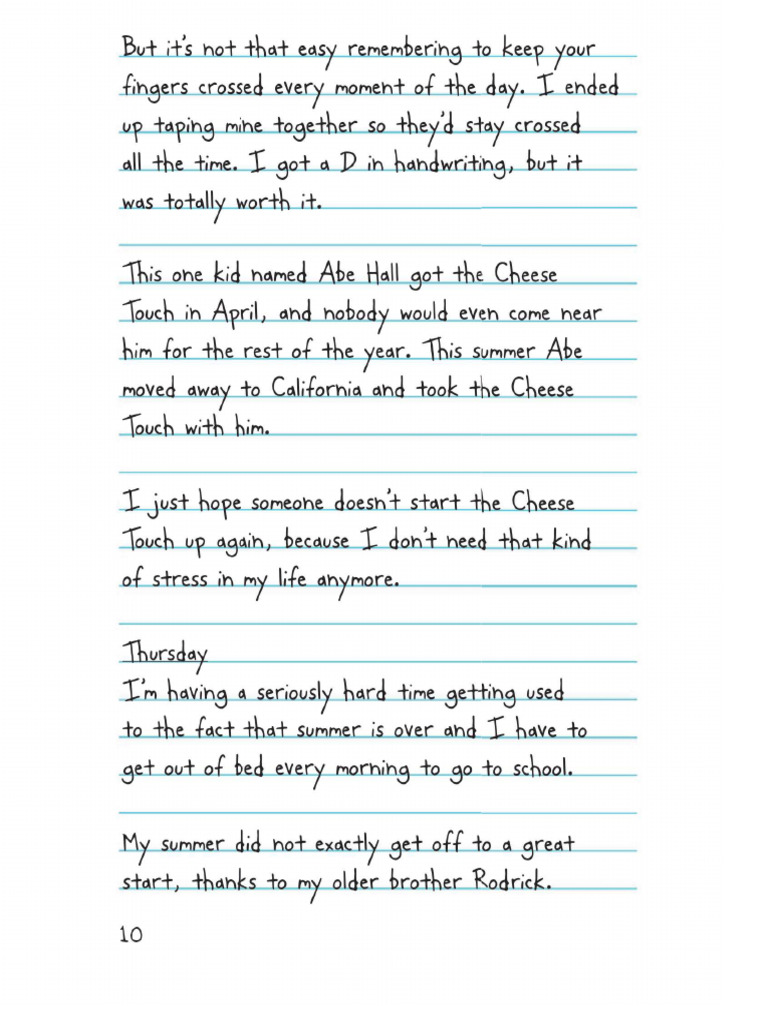 But it's not that easy remembering to keep your
fingers crossed every moment of the day. I ended
up taping mine together so they'd stay crossed
all the time. I got a D in handwriting, but it
was totally worth it.
This one kid named Abe Hall got the Cheese
Touch in April, and nobody would even come near
him for the rest of the year. This summer Abe
moved away to California and took the Cheese
Touch with him.
I just hope someone doesn't start the Cheese
Touch up again, because I don't need that kind
of stress in my life anymore.
Thursday
I'm having a seriously hard time getting used
to the fact that summer is over and I have to
get out of bed every morning to go to school.
My summer did not exactly get off to a great
start, thanks to my older brother Rodrick.
10